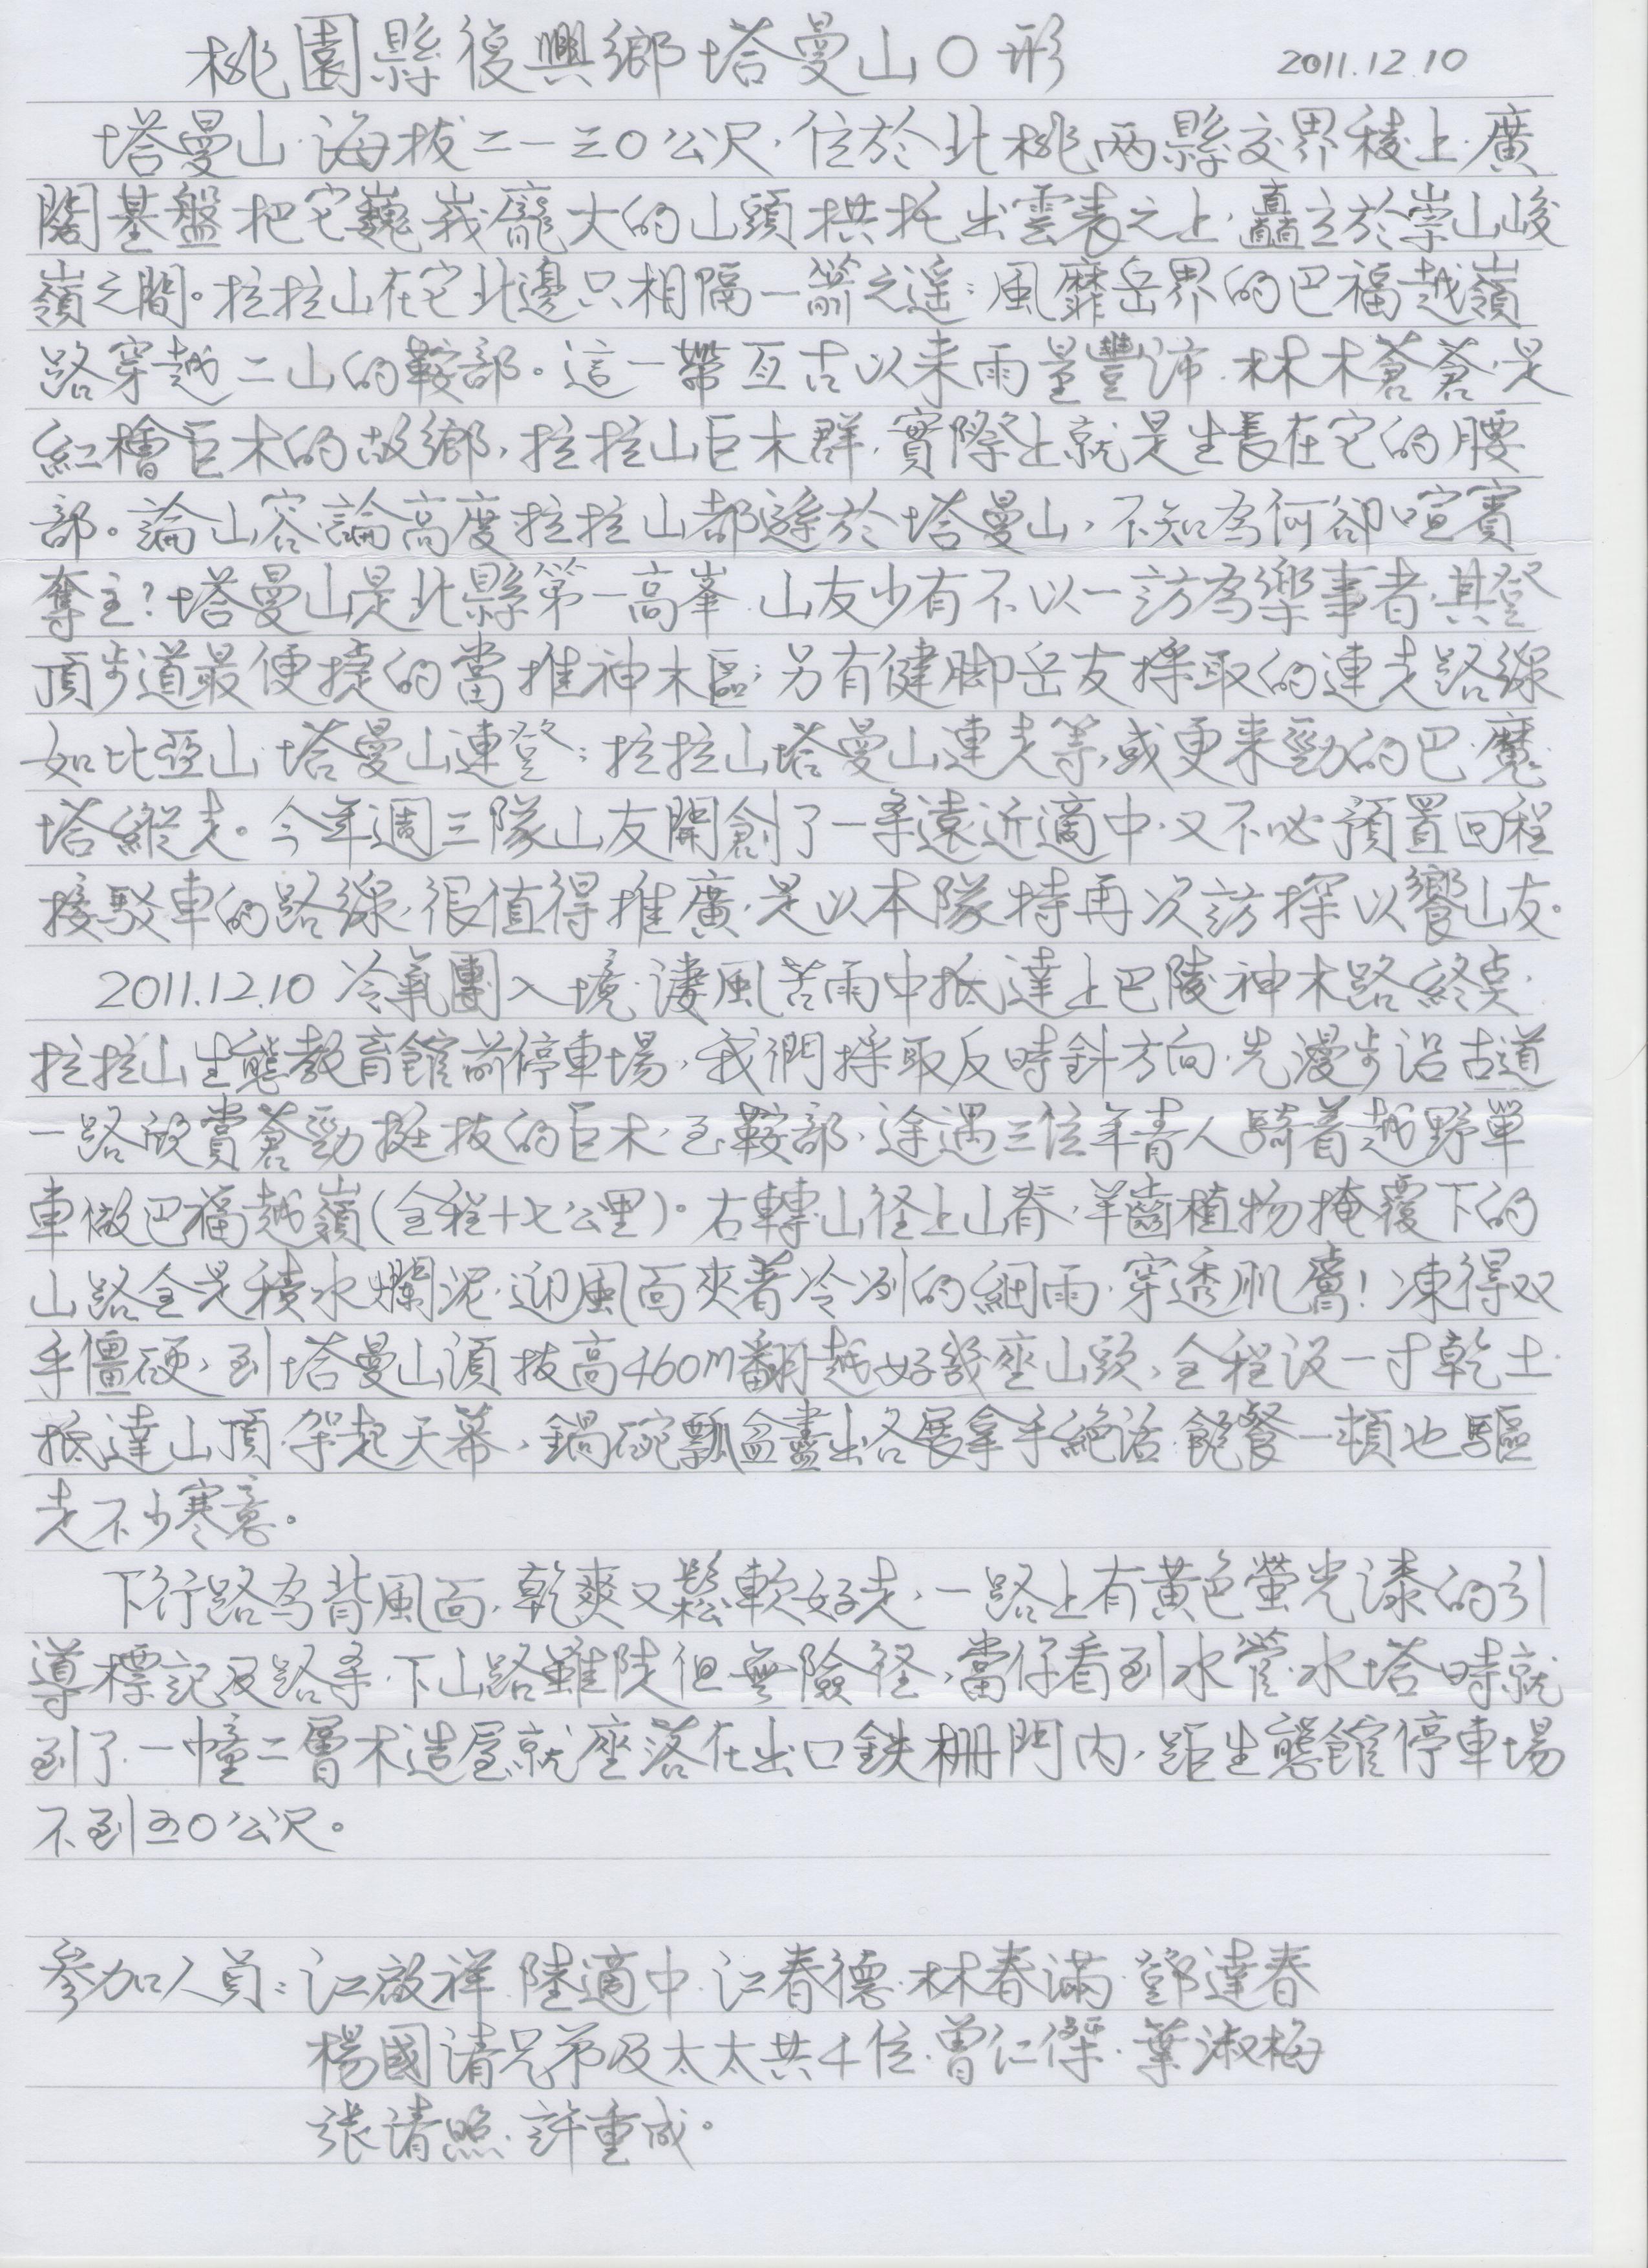 桃園縣復興鄉塔曼山O形 2011.12.10
塔曼山.海拔二一三0公尺,位於北桃兩縣交界稜上.廣
闊基盤把它巍峩龐大的山頭拱托出雲表之上,矗立於崇山峻
嶺之間。拉拉山在它北邊只相隔一箭之遥;風靡岳界的巴福越嶺
路穿越二山的鞍部。這一帶亙古以来雨量豐沛.林木蒼蒼.是
紅檜巨木的故鄉,拉拉山巨木群,實際上就是生長在它的腰
部。論山容.論高度拉拉山都遜於塔曼山,不知為何卻喧賓
奪主?塔曼山是北縣第一高峯.山友少有不以一訪為樂事者,其登
頂步道最便捷的當推神木區;另有健脚岳友採取的連走路線
如比亞山.塔曼山連登;拉拉山塔曼山連走等,或更来勁的巴.魔.
塔縱走。今年週三隊山友開創了一条遠近適中.又不必預置回程
接駁車的路線,很值得推廣,是以本隊特再次訪探以饗山友。
2011.12.10 冷氣團入境.淒風苦雨中抵達上巴陵神木路終点,
拉拉山生態教育館前停車場,我們採取反時針方向.先漫步沿古道
一路欣賞蒼勁挺拔的巨木,至鞍部,途遇三位年青人騎着越野單
車做巴福越嶺(全程十七公里)。右轉山徑上山脊,羊齒植物掩覆下的
山路全是積水爛泥.迎風面夾着冷冽的細雨.穿透肌膚!凍得双
手僵硬,到塔曼山頂拔高460M翻越好幾座山頭,全程沒一寸乾土.
抵達山頂.架起天幕,鍋碗瓢盆盡出各展拿手絕活.飽餐一頓也驅
走不少寒意。
下行路為背風面,乾爽又鬆軟好走,一路上有黃色螢光漆的引
導標記及路条.下山路雖陡但無險徑,當你看到水管.水塔時就
到了.一幢二層木造屋就座落在出口鉄柵門內,距生態館停車場
不到五0公尺。
參加人員:江啟祥.陸適中.江春德.林春滿.鄧達春
楊國靖兄弟及太太共4位.曾仁傑.葉淑梅
張靖照.許重成。